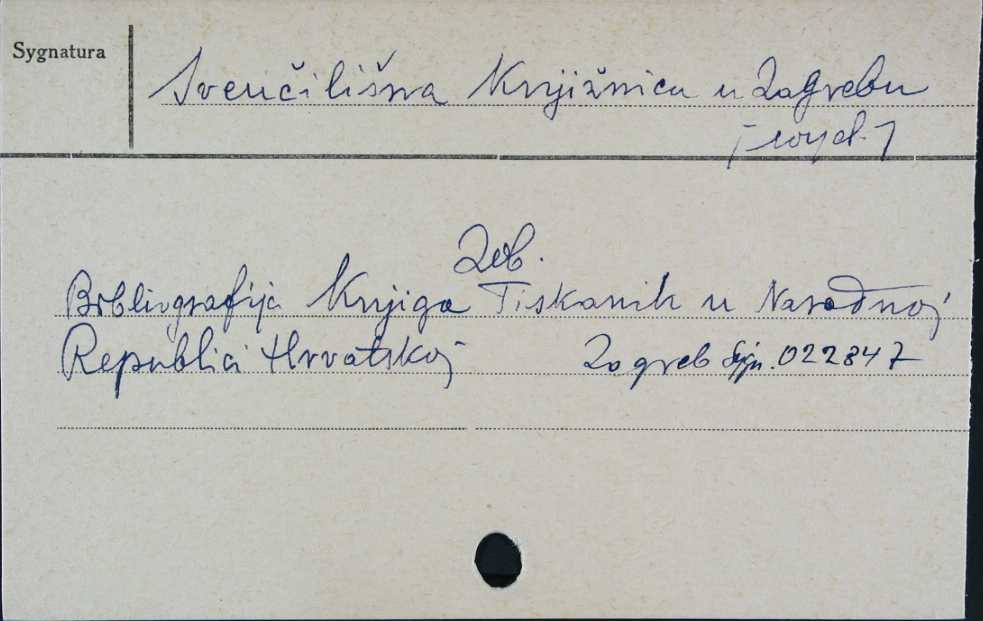 Sygnatura
Sveučilišna Knjižnica u Zagrebu
[wyd.]
Zob.
Bibliografija Knjiga Tiskanih u Narodnoj
Republici Hrvatskoj Zagreb Sygn. 022847